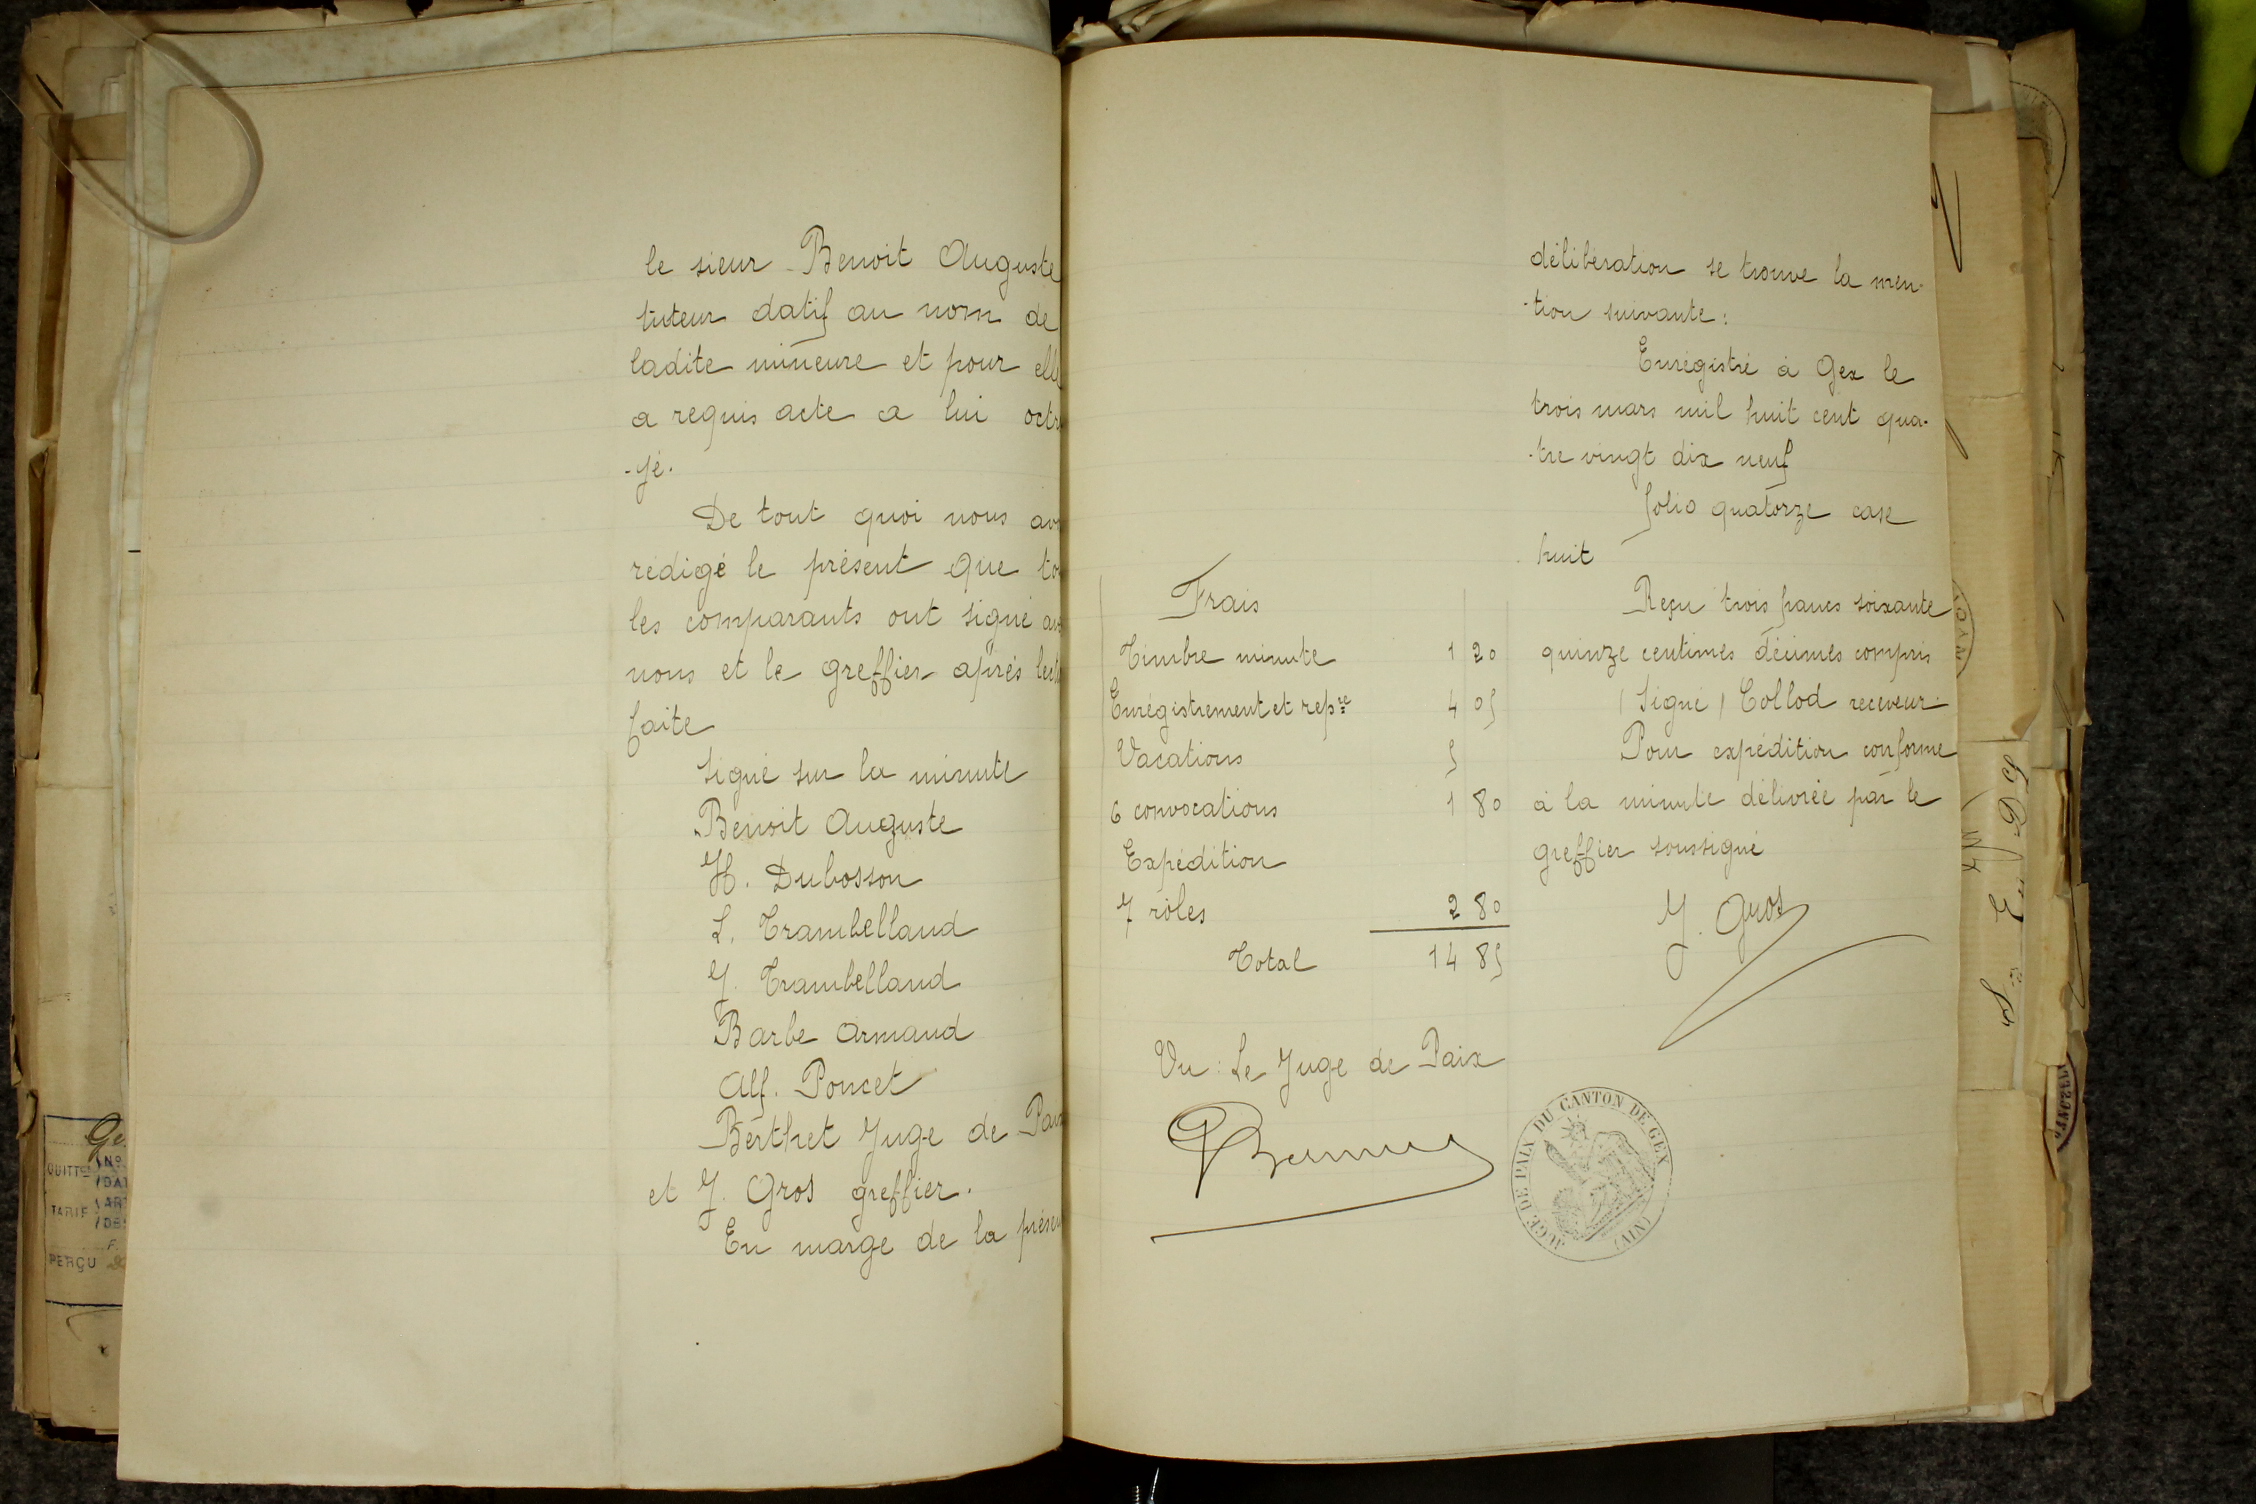 le sieur Benoit Auguste
tuteur datif au nom de
ladite mineure et pour ell
a requis acte a lui octr
-yé.
De tout quoi nous av
rédigé le présent que to
les comparants ont signé av
nous et le greffier après lect
faite
signé sur la minute
Benoit Auguste
H. Dubosson
L. Trambelland
J. Trambelland
Barbe Armand
Alf. Poncet
Berthet Juge de Paix
et J. Gros greffier.
En marge de la présen
délibération se trouve la men-
-tion suivante:
Enrégistré à Gex le
trois mars mil huit cent qua-
-tre vingt dix neuf
folio quatorze case
huit
Reçu trois francs soixante
quinze centimes décimes compris
(Signé) Collod receveur
Pour expédition conforme
à la minute délivrée par le
greffier soussigné
J. Gros
Frais
Timbre minute 1 20
Enrégistrement et repre 4 05
Vacations 5
6 convocations 1 80
Expédition
7 rôles 2 80
Total 14 85
Vu: Le Juge de Paix
JUGE DE PAIX DU CANTON DE GEX
(AIN)
QUITTCE
No
TARIF
PERÇU